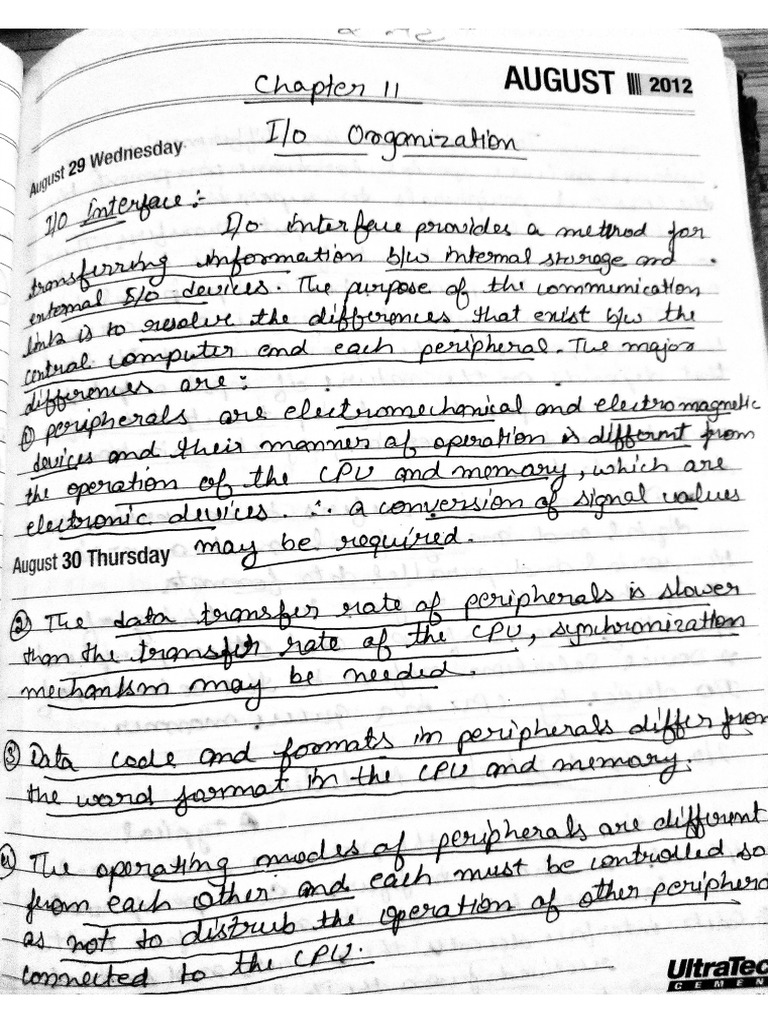 Chapter 11
AUGUST 2012
I/o Organization
August 29 Wednesday
I/O Interface :-
I/o interface provides a method for
transferring information b/w internal storage and
external I/O devices. The purpose of the communication
links is to resolve the differences that exist b/w the
central computer and each peripheral. The major
differences are :
① peripherals are electromechanical and electromagnetic
devices and their manner of operation is different from
the operation of the CPU and memory, which are
electronic devices. ∴ a conversion of signal values
may be required.
August 30 Thursday
② The data transfer rate of peripherals is slower
than the transfer rate of the CPU, synchronization
mechanism may be needed.
③ Data code and formats in peripherals differ from
the word format in the CPU and memory.
④ The operating modes of peripherals are different
from each other and each must be controlled so
as not to distrub the operation of other periphera
connected to the CPU.
UltraTec
CEMEN